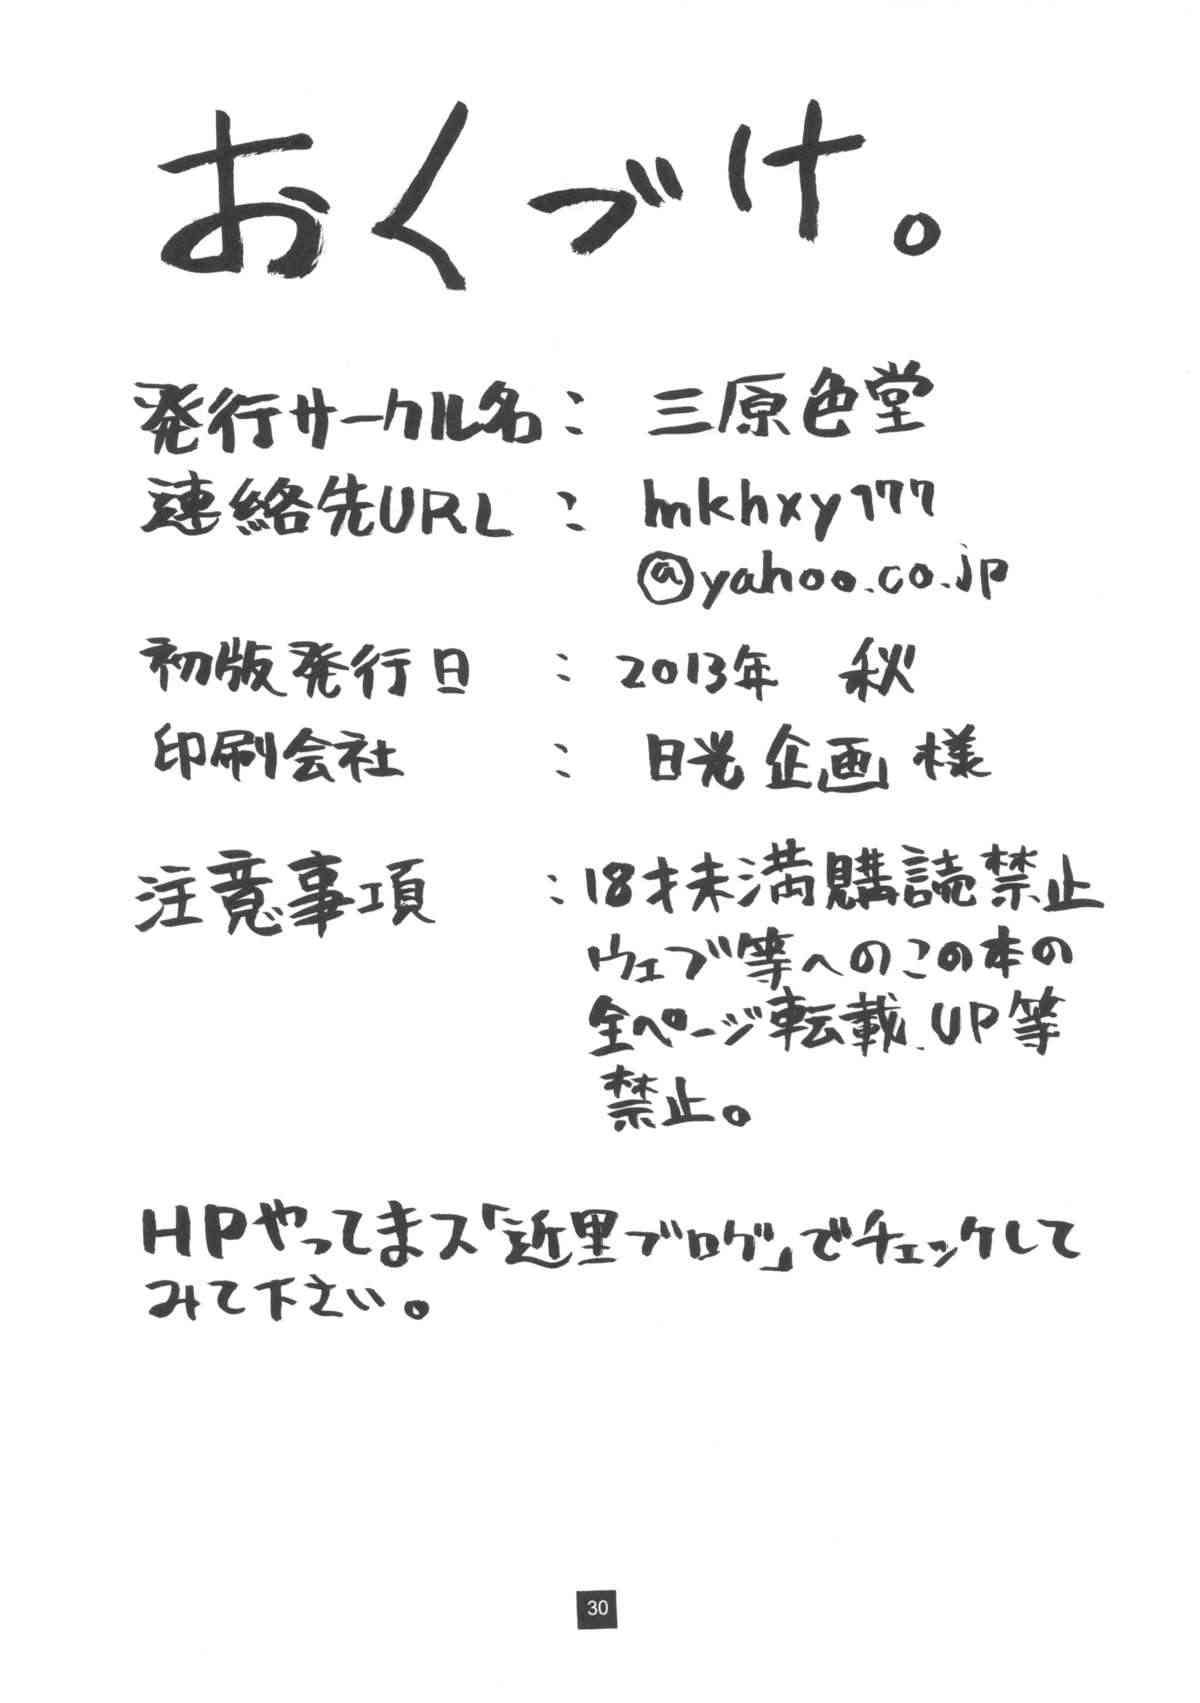 おくづけ。
発行サークル名： 三原色堂
連絡先URL ： mkhxy777
@yahoo.co.jp
初版発行日 ： 2013年 秋
印刷会社 ： 日光企画 様
注意事項 ：18才未満購読禁止
ウェブ等へのこの本の
全ページ転載、UP等
禁止。
HPやってまス「近里ブログ」でチェックして
みて下さい。
30